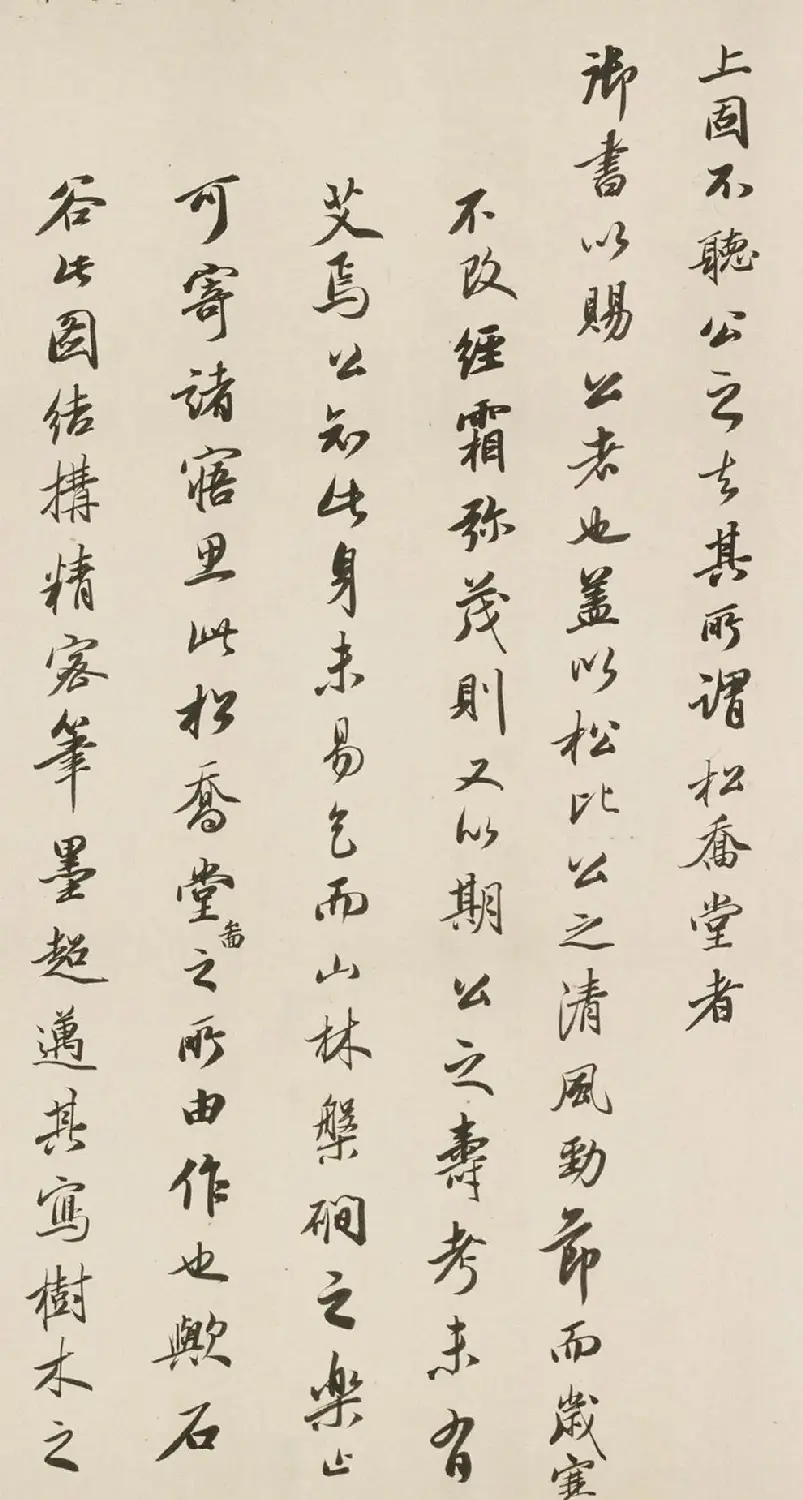 上固不聽公之去其所謂松喬堂者
御書以賜公者也盖以松比公之清風勁節而歲寒
不改經霜弥茂則又以期公之壽考未有
艾焉公知此身未易乞而山林槃磵之樂止
可寄諸寤思此松喬堂圖之所由作也歟石
谷此圖結搆精密筆墨超邁其寫樹木之